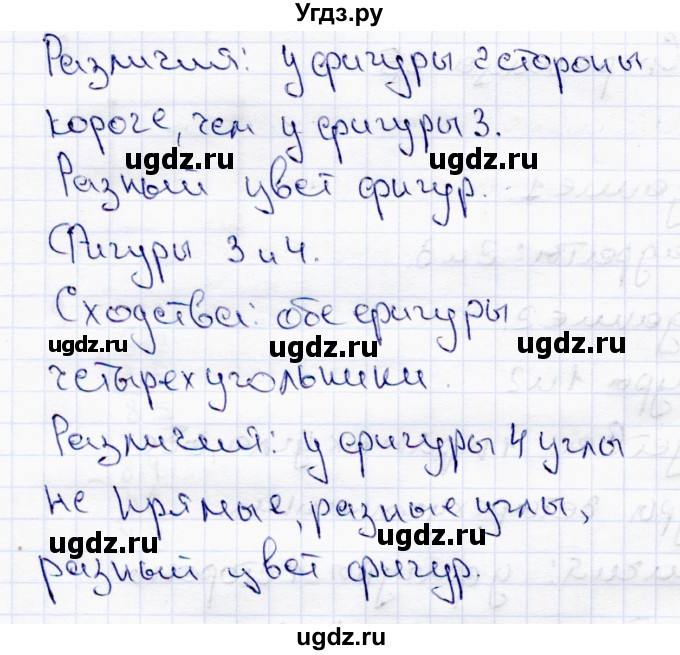 Угдз.ру
Различия: у фигуры 2 стороны
короче, чем у фигуры 3.
ugdz.ru ugdz.ru
Разный цвет фигур.
Фигуры 3 и 4.
Сходства: обе фигуры
ugdz.ru ugdz.ru ugdz.ru
четырехугольники.
Различия: у фигуры 4 углы
не прямые, разные углы,
ugdz.ru ugdz.ru
разный цвет фигур.
ugdz.ru